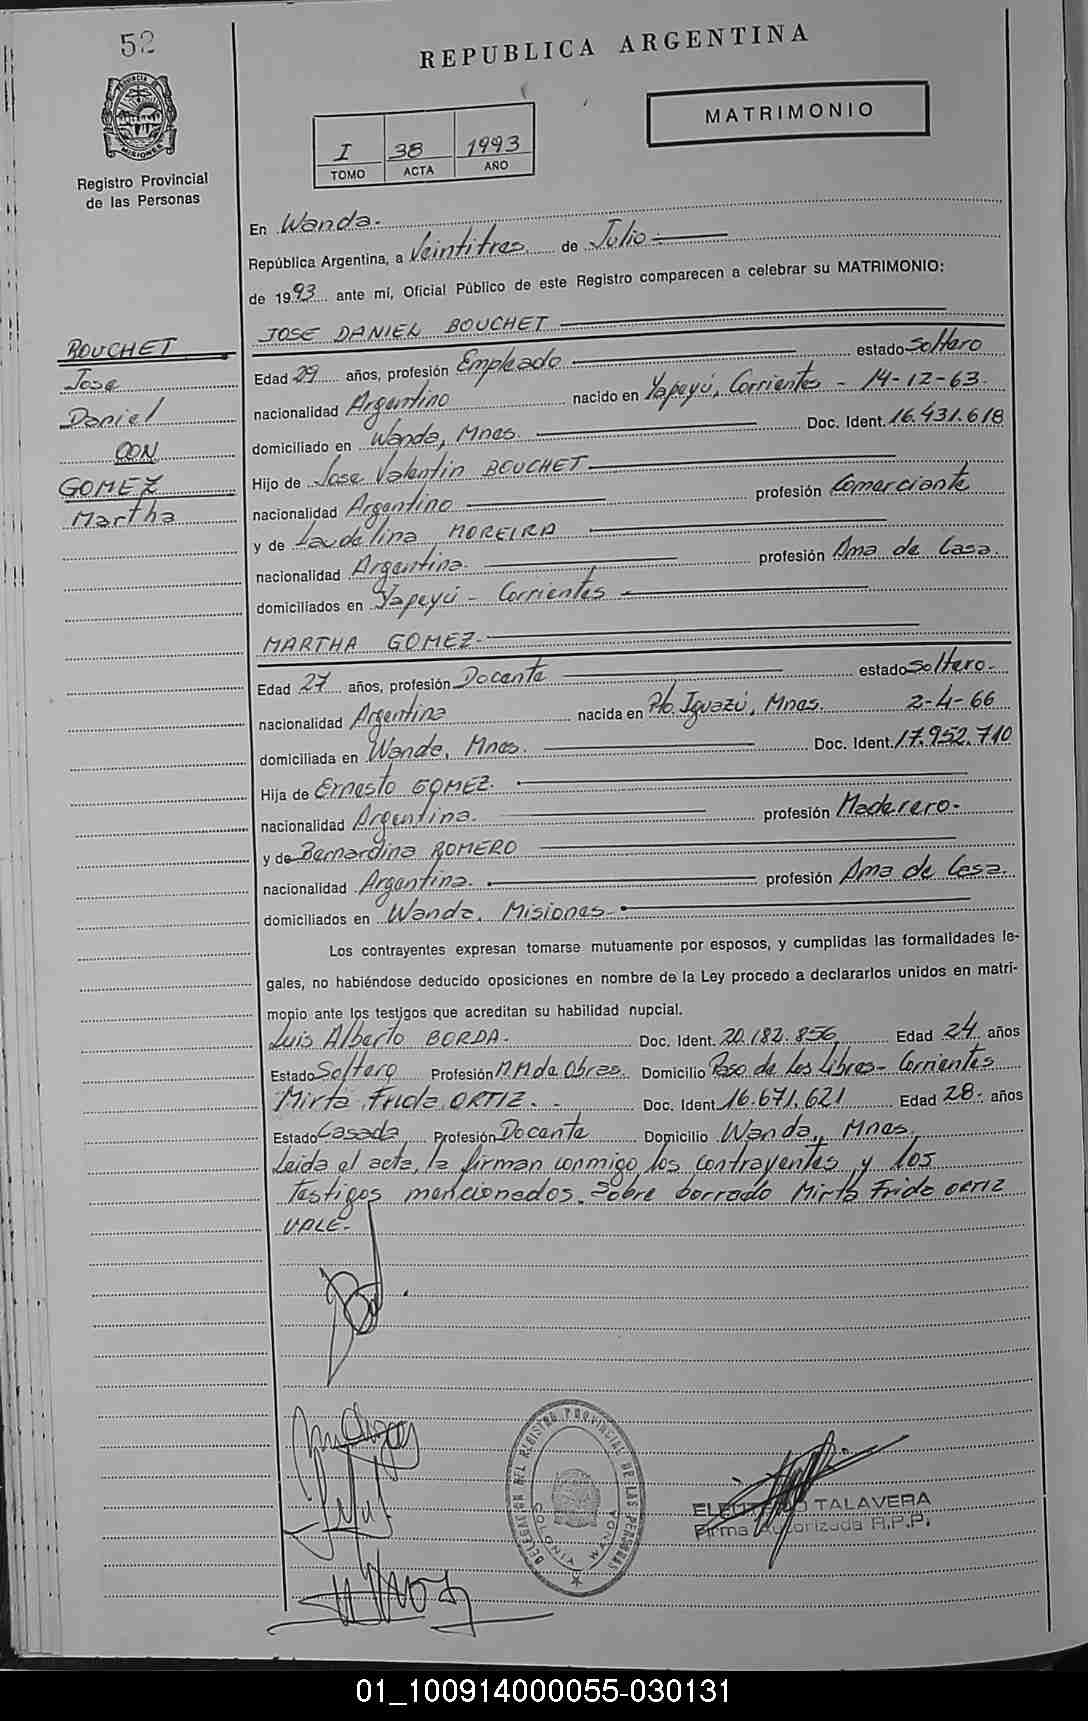 52
REPUBLICA ARGENTINA
PROVINCIA DE MISIONES
Registro Provincial
de las Personas
MATRIMONIO
I 38 1993
TOMO ACTA AÑO
En Wanda.
República Argentina, a Veintitres de Julio
de 1993 ante mí, Oficial Público de este Registro comparecen a celebrar su MATRIMONIO:
BOUCHET
Jose
Daniel
CON
GOMEZ
Martha
JOSE DANIEL BOUCHET
Edad 29 años, profesión Empleado estado Soltero
nacionalidad Argentino nacido en Yapeyú, Corrientes - 14-12-63.
domiciliado en Wanda, Mnes. Doc. Ident. 16.431.618
Hijo de Jose Valentin BOUCHET
nacionalidad Argentino profesión Comerciante
y de Laudelina MOREIRA
nacionalidad Argentina. profesión Ama de Casa.
domiciliados en Yapeyú - Corrientes
MARTHA GOMEZ.
Edad 27 años, profesión Docente estado Soltero.
nacionalidad Argentina nacida en Pto. Iguazú, Mnes. 2-4-66
domiciliada en Wanda, Mnes. Doc. Ident. 17.952.710
Hija de Ernesto GOMEZ.
nacionalidad Argentina. profesión Maderero.
y de Bernardina ROMERO
nacionalidad Argentina. profesión Ama de Casa.
domiciliados en Wanda, Misiones.
Los contrayentes expresan tomarse mutuamente por esposos, y cumplidas las formalidades le-
gales, no habiéndose deducido oposiciones en nombre de la Ley procedo a declararlos unidos en matri-
monio ante los testigos que acreditan su habilidad nupcial.
Luis Alberto BORDA. Doc. Ident. 20.182.856 Edad 24 años
Estado Soltero Profesión M.M. de Obras Domicilio Paso de los Libres - Corrientes
Mirta Frida ORTIZ. - Doc. Ident. 16.671.621 Edad 28. años
Estado Casada Profesión Docente Domicilio Wanda, Mnes.
Leida el acta, la firman conmigo los contrayentes y los
testigos mencionados. Sobre borrado Mirta Frida ORTIZ
VALE.
DELEGACION DEL REGISTRO PROVINCIAL DE LAS PERSONAS
COLONIA WANDA
ELEUTERIO TALAVERA
Firma Autorizada R.P.P.
01_100914000055-030131